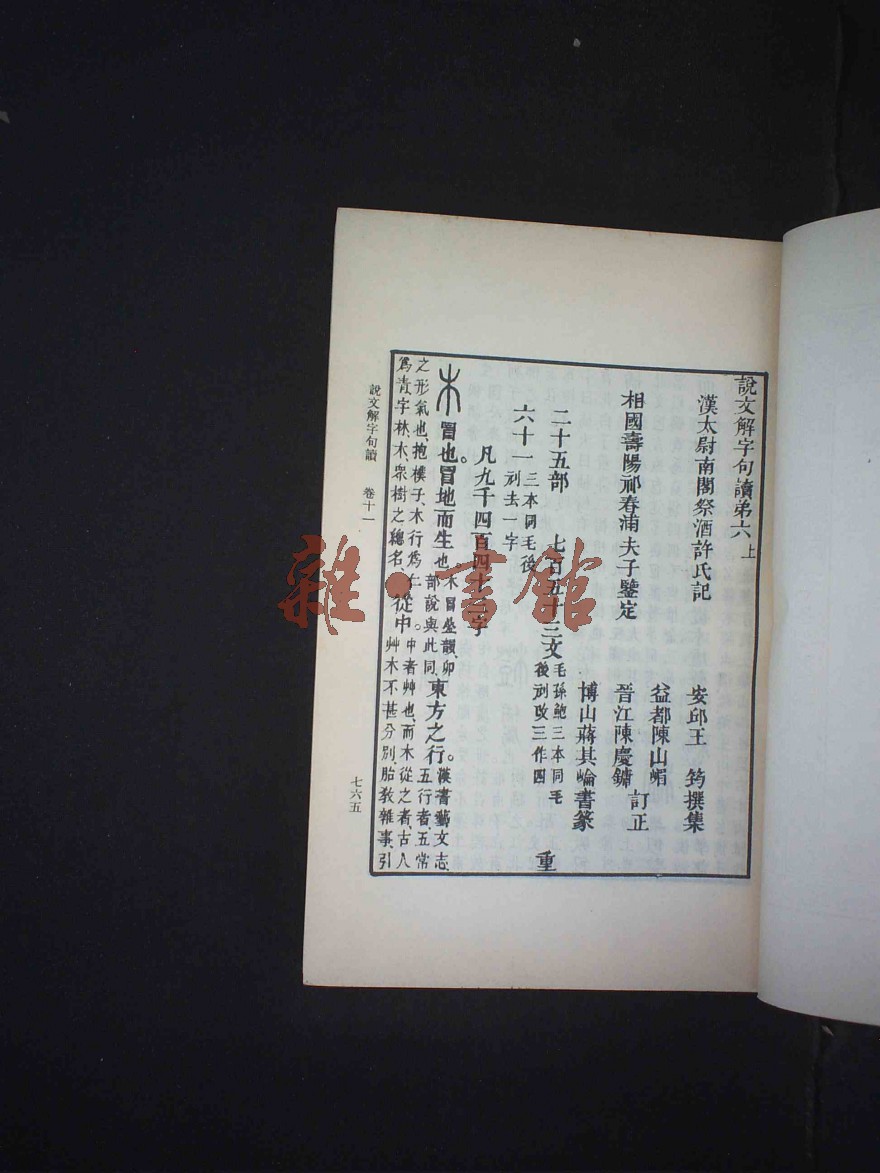 說文解字句讀弟六上
漢太尉南閣祭酒許氏記
安邱王　筠撰集
相國壽陽祁春浦夫子鑒定
益都陳山嵋
晉江陳慶鏞
訂正
博山蔣其崘書篆
二十五部　七百五十三文毛孫鮑三本同毛
後刓改三作四　重
六十一三本同毛後
刓去一字
凡九千四百四十二字
木冒也。冒地而生也木冒疊韻、卯
部說與此同、東方之行。漢書藝文志、
五行者、五常
之形氣也、抱樸子、木行為仁、
為青、字林、木、眾樹之總名、從屮。屮者艸也、而木從之者、古人
艸木不甚分別、胎教雜事、引
說文解字句讀　卷十一
七六五
雜·書館